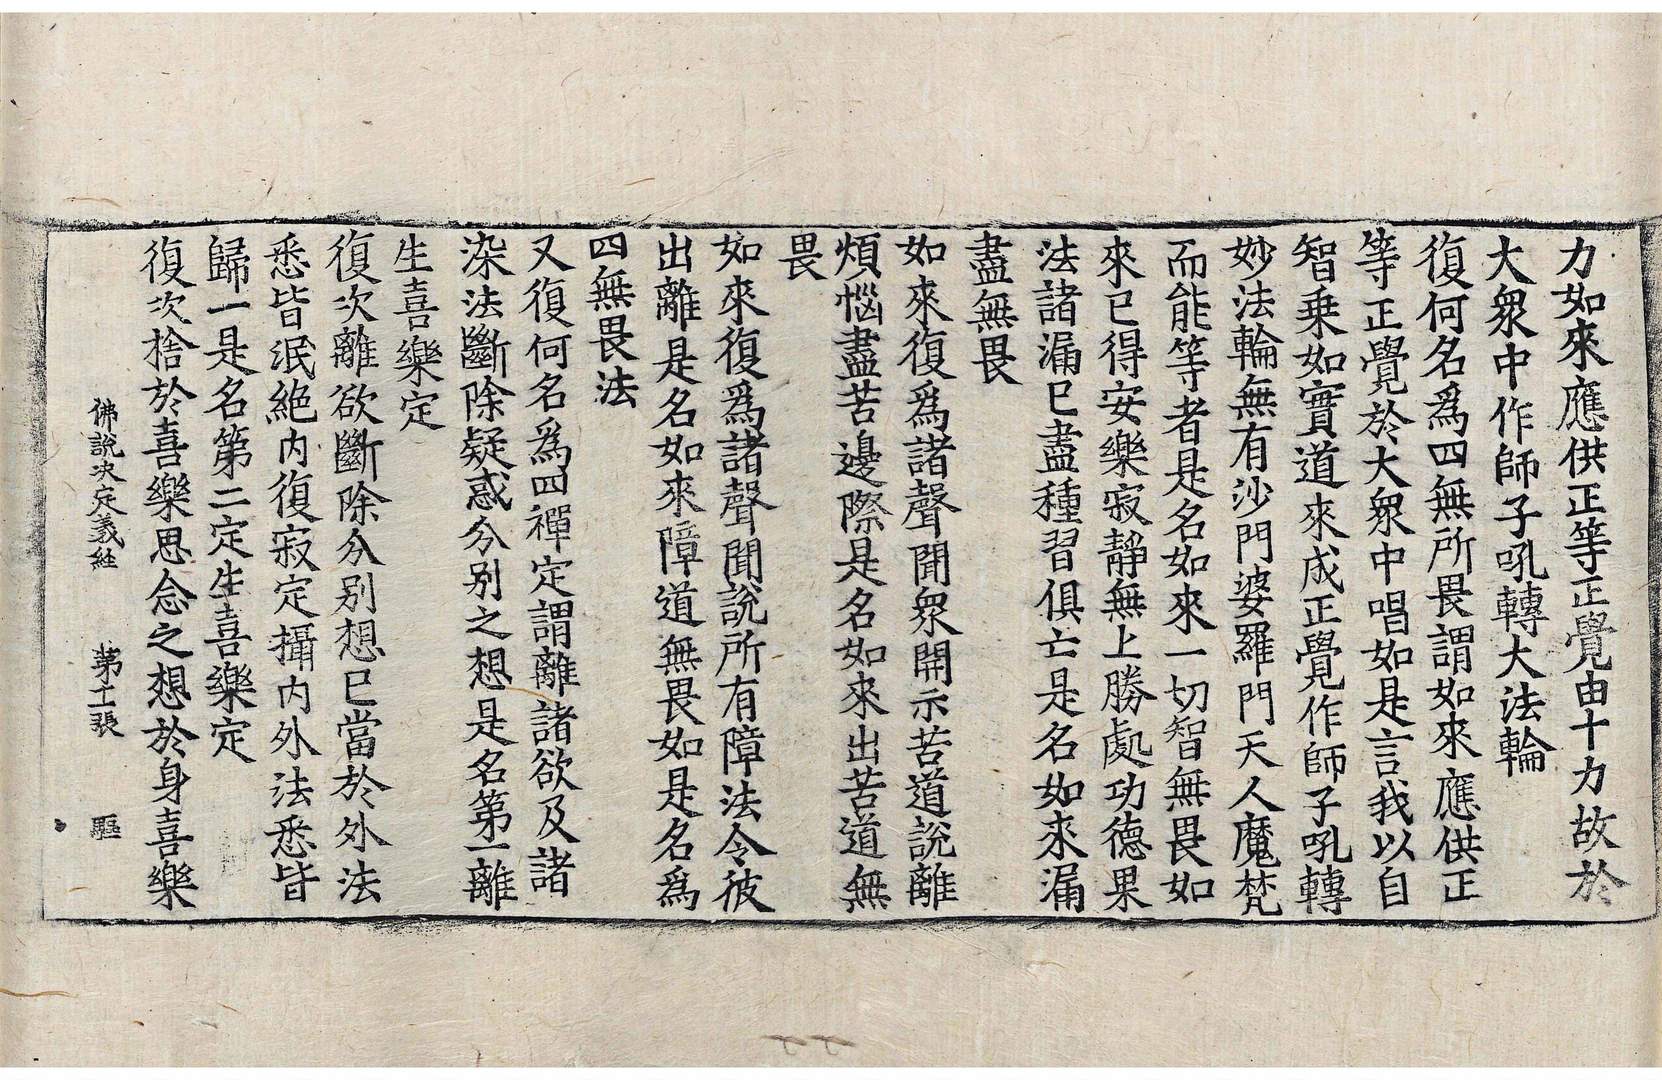 力如來應供正等正覺由十力故於
大衆中作師子吼轉大法輪
復何名爲四無所畏謂如來應供正
等正覺於大衆中唱如是言我以自
智乗如實道來成正覺作師子吼轉
妙法輪無有沙門婆羅門天人魔梵
而能等者是名如來一切智無畏如
來已得安樂寂靜無上勝處功德果
法諸漏已盡種習俱亡是名如來漏
盡無畏
如來復爲諸聲聞衆開示苦道說離
煩惱盡苦邊際是名如來出苦道無
畏
如來復爲諸聲聞說所有障法令彼
出離是名如來障道無畏如是名爲
四無畏法
又復何名爲四禪定謂離諸欲及諸
染法斷除疑惑分别之想是名第一離
生喜樂定
復次離欲斷除分别想已當於外法
悉皆泯絶内復寂定攝内外法悉皆
歸一是名第二定生喜樂定
復次捨於喜樂思念之想於身喜樂
佛說决定義經 第工張 驅